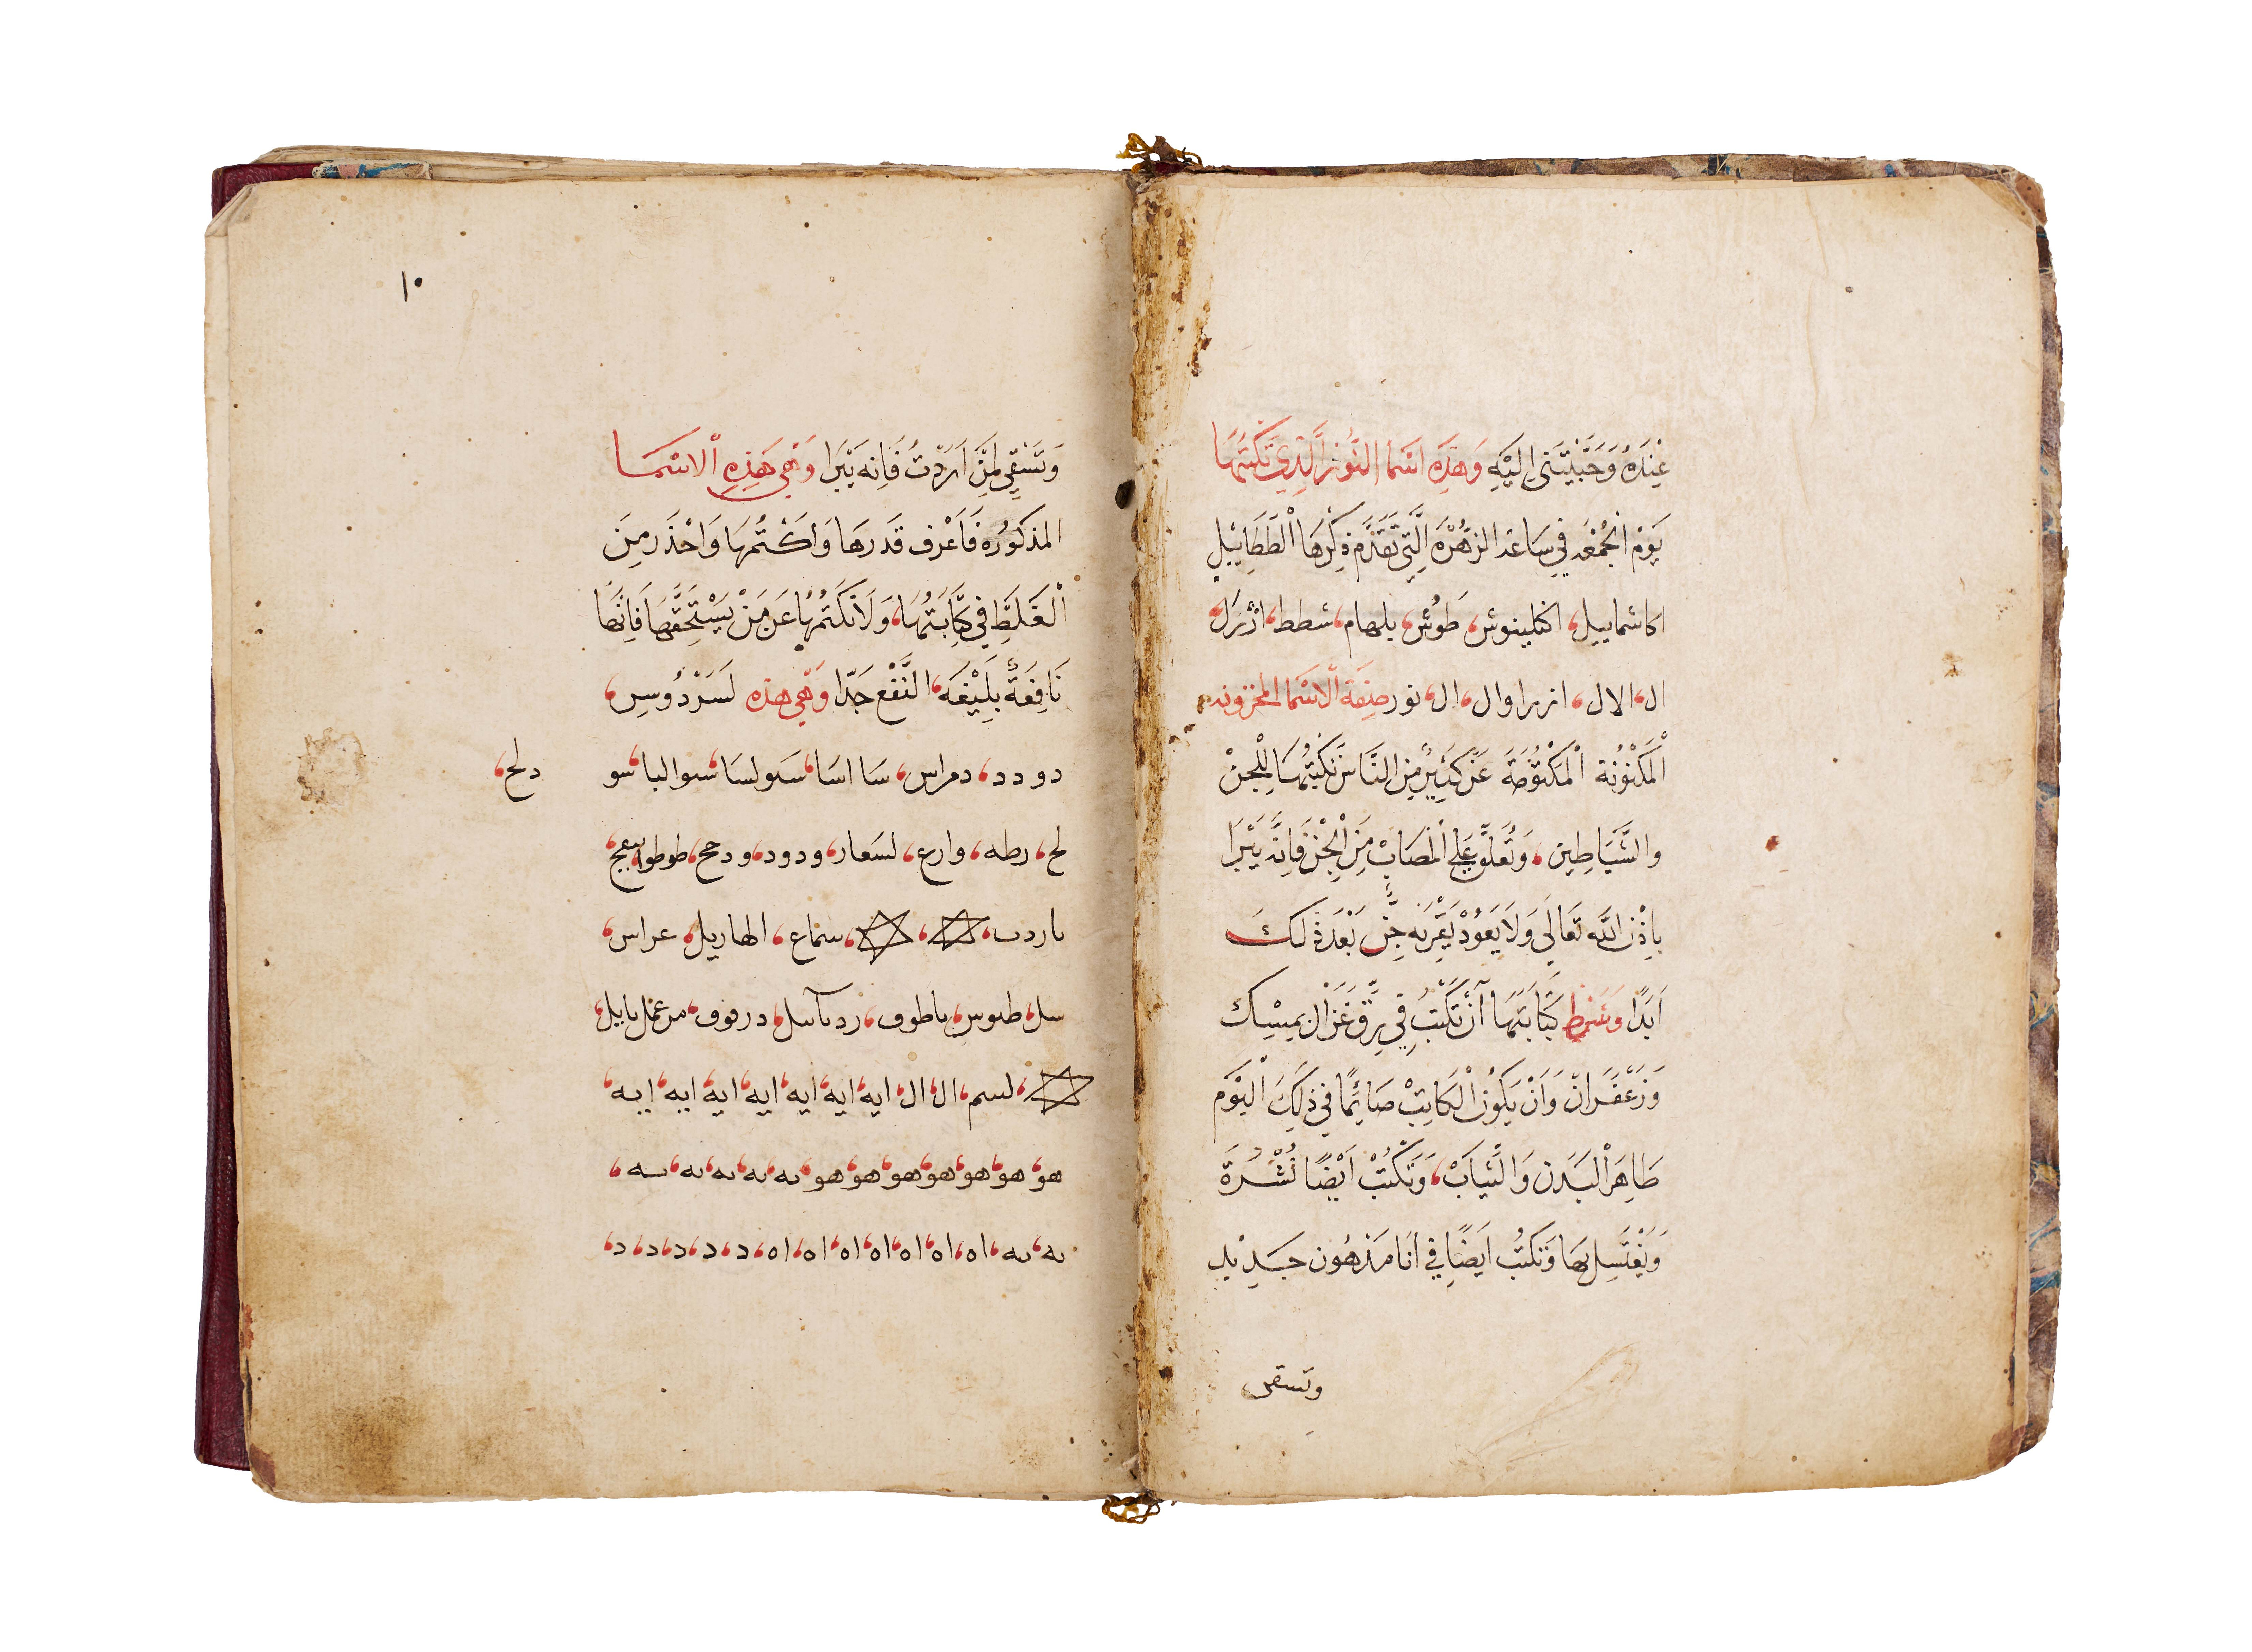 عِنْدَهُ وَحَبَّبْتَنِي اِلَيْهِ وَهَذِهِ اسْمَا النُّورْ الَّذِي تَكْتُبَهَا
يَوْمْ الْجُمْعَه فِي سَاعَة الزُهْرَه الَّتِي تَقَدَّم ذِكْرَهَا الْطَطَاييل
اكاشماييل، طَوُش، يلمهام، شطط،
ال، الال، ازرا وال، ال، نور صِفَة الاسْمَا المخزونه
الْمَكْنُوْنُة عَنْ كَثِيرٍ مِنِ النَّاسْ تَكْتُبُهَا لِلْجِنْ
والشَّيَاطِين، وَتُعَلَّقْ عَلَي الْمُصَابْ مِنَ الْجِنْ فَاِنَّه يَبْرَا
بِاِذْنِ اللّه تَعَالَي وَلَا يَعَوُدْ يَقْرَبَه جِنٌّ بَعْدَ ذَلِكَ
اَبَدًا وَشرط كِتَابَتَهَا اَنْ تَكْتُبْ فِي رِقّ غَزَال بِمِسْك
وَزَعْفَرَانْ وَاَنْ يَكُونْ الْكَاتِبْ صَائِمًا فِي ذَلِكَ الْيَوْم
طَاهِرْ الْبَدَن وَالثِّيَابْ، وَتَكْتُبْ اَيْضًا نُشْرَةَ
وَيَغْتَسِل بِهَا وَتكْتُب اَيضًا فِي اَنَا مَدْهُون جَدِيْد
وتسقى
١٠
وَتَسْقِي لِمَنْ اَرَدْتَ فَاِنه يَبْرَا وَهِيَ هَذِهِ الاسْمَا
المذكوُره فَاَعْرِف قَدرَهَا وَاكْتُمهَا وَاحْذَر مِنَ
الْغَلَطِ فِي كِتَابَتُهَا، وَلَا تَكْتُمْهَا عَن مَنْ يَسْتَحِقَّهَا فَاِنَّهَا
نَافِعَةٌ بَلِيْغَة، النَّفْع جَدّا وَهِي هذه لَسَرْدُوسِ،
دودد، دمراس، سَا اسَا، سَولسَا، سوالبا، سو
دلح،
لح، رطه، وارع، لسَعار، ودود، ودحح، طوطوا
باردب، سماع، الهاريل، عراس،
سل، طوسِ، باطوف، درفوف،
لسم، ال، ال، ايه، ايه، ايه، ايه، ايه، ايه، ايه
هو، هو، هو، هو، هو، هو، هو، به، به، به، به، به،
به، به، اه، اه، اه، اه، اه، اه، اه، د، د، د، د، د،